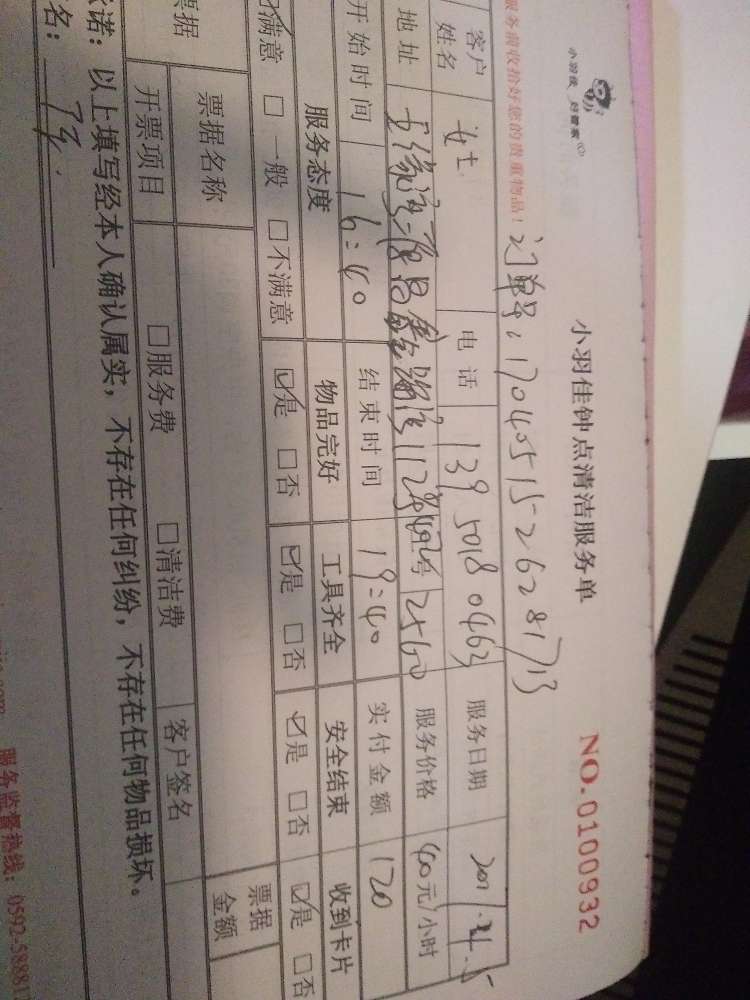 小羽佳 好管家
小羽佳钟点清洁服务单
NO.0100932
服务前收拾好您的贵重物品！
订单号：1704051526281713
客户姓名 女士 电话 13950180463 服务日期
地址 2560 服务价格 40元/小时
开始时间 16:40 结束时间 19:40 实付金额 120
服务态度 物品完好 工具齐全 安全结束 收到卡片
满意 □一般 □不满意 ☑是 □否 ☑是 □否 ☑是 □否 ☑是 □否
票据 票据名称 票据金额
开票项目 □服务费 □清洁费 客户签名
承诺：以上填写经本人确认属实，不存在任何纠纷，不存在任何物品损坏。
名：
服务监督热线：0592-58881